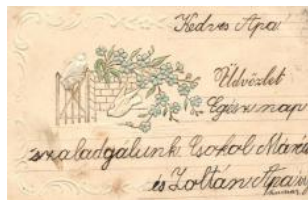 Kedves Apa!
Üdvözlet
Egész nap
szaladgálunk. Csokol Mária
és Zoltán Apa